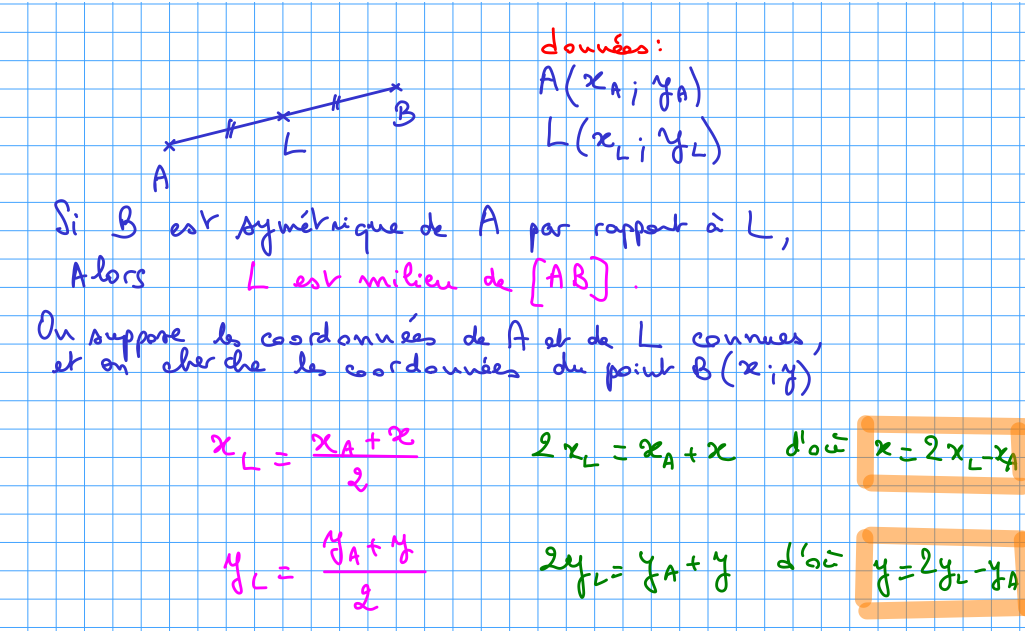 données:
A(x_A ; y_A)
L(x_L ; y_L)
A L B
Si B est symétrique de A par rapport à L,
Alors L est milieu de [AB].
On suppose les coordonnées de A et de L connues,
et on cherche les coordonnées du point B(x ; y)
x_L = (x_A + x)/2 2x_L = x_A + x d'où x = 2x_L - x_A
y_L = (y_A + y)/2 2y_L = y_A + y d'où y = 2y_L - y_A